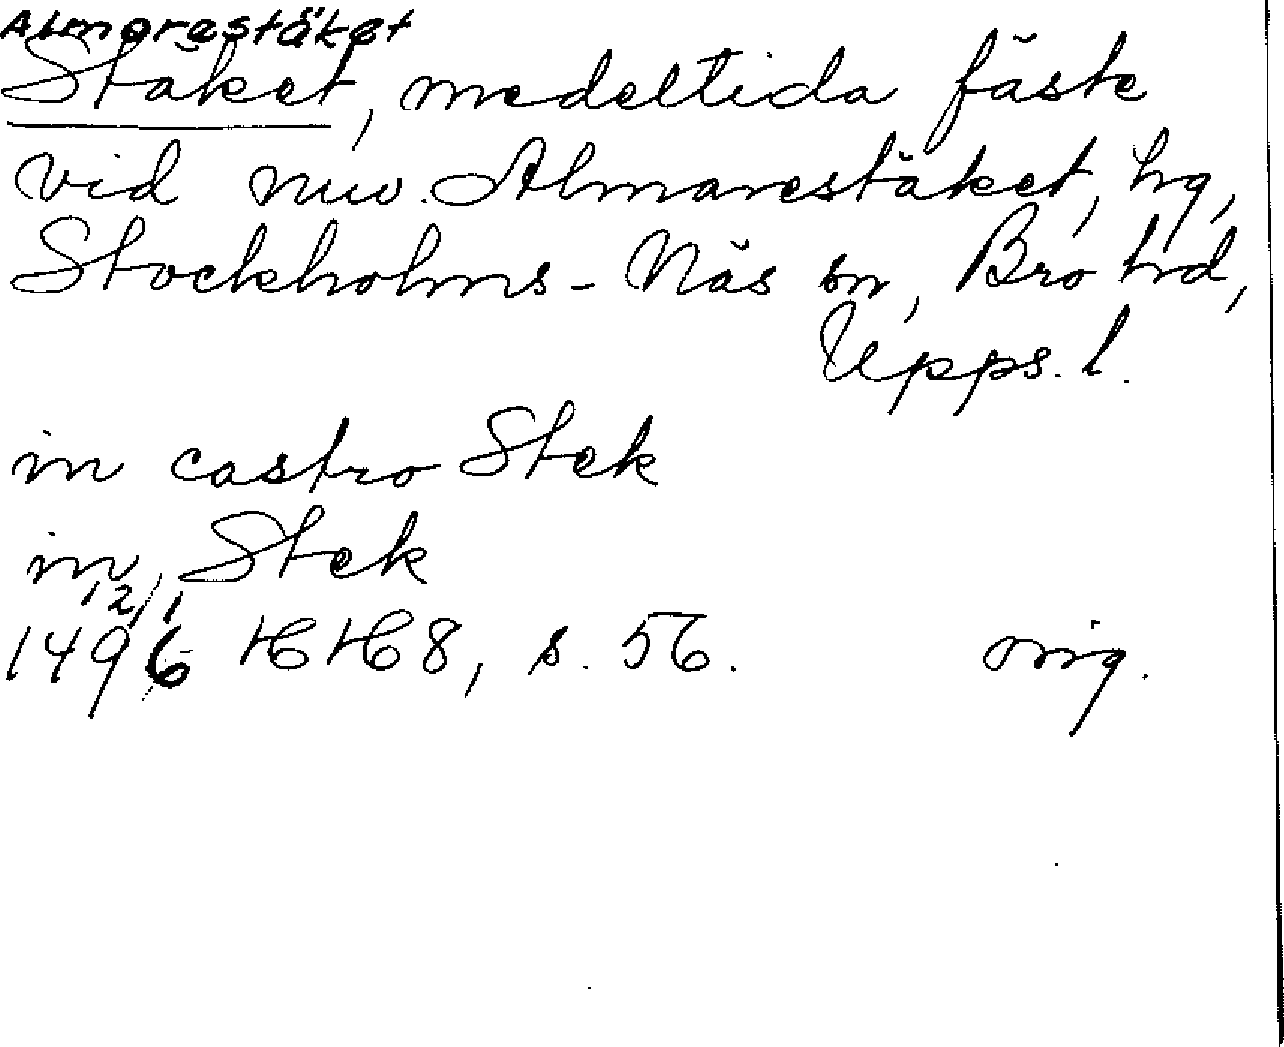 Almarestäket
Stäket, medeltida fäste
vid nuv. Almarestäket, hg,
Stockholms-Näs sn, Bro hd,
Upps. l.
in castro Stek
in Stek
12/1
1496 HH 8, s. 56. orig.